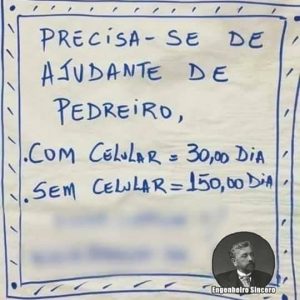 PRECISA-SE DE
AJUDANTE DE
PEDREIRO,
.COM CELULAR = 30,00 DIA
.SEM CELULAR = 150,00 DIA
Engenheiro Sincero